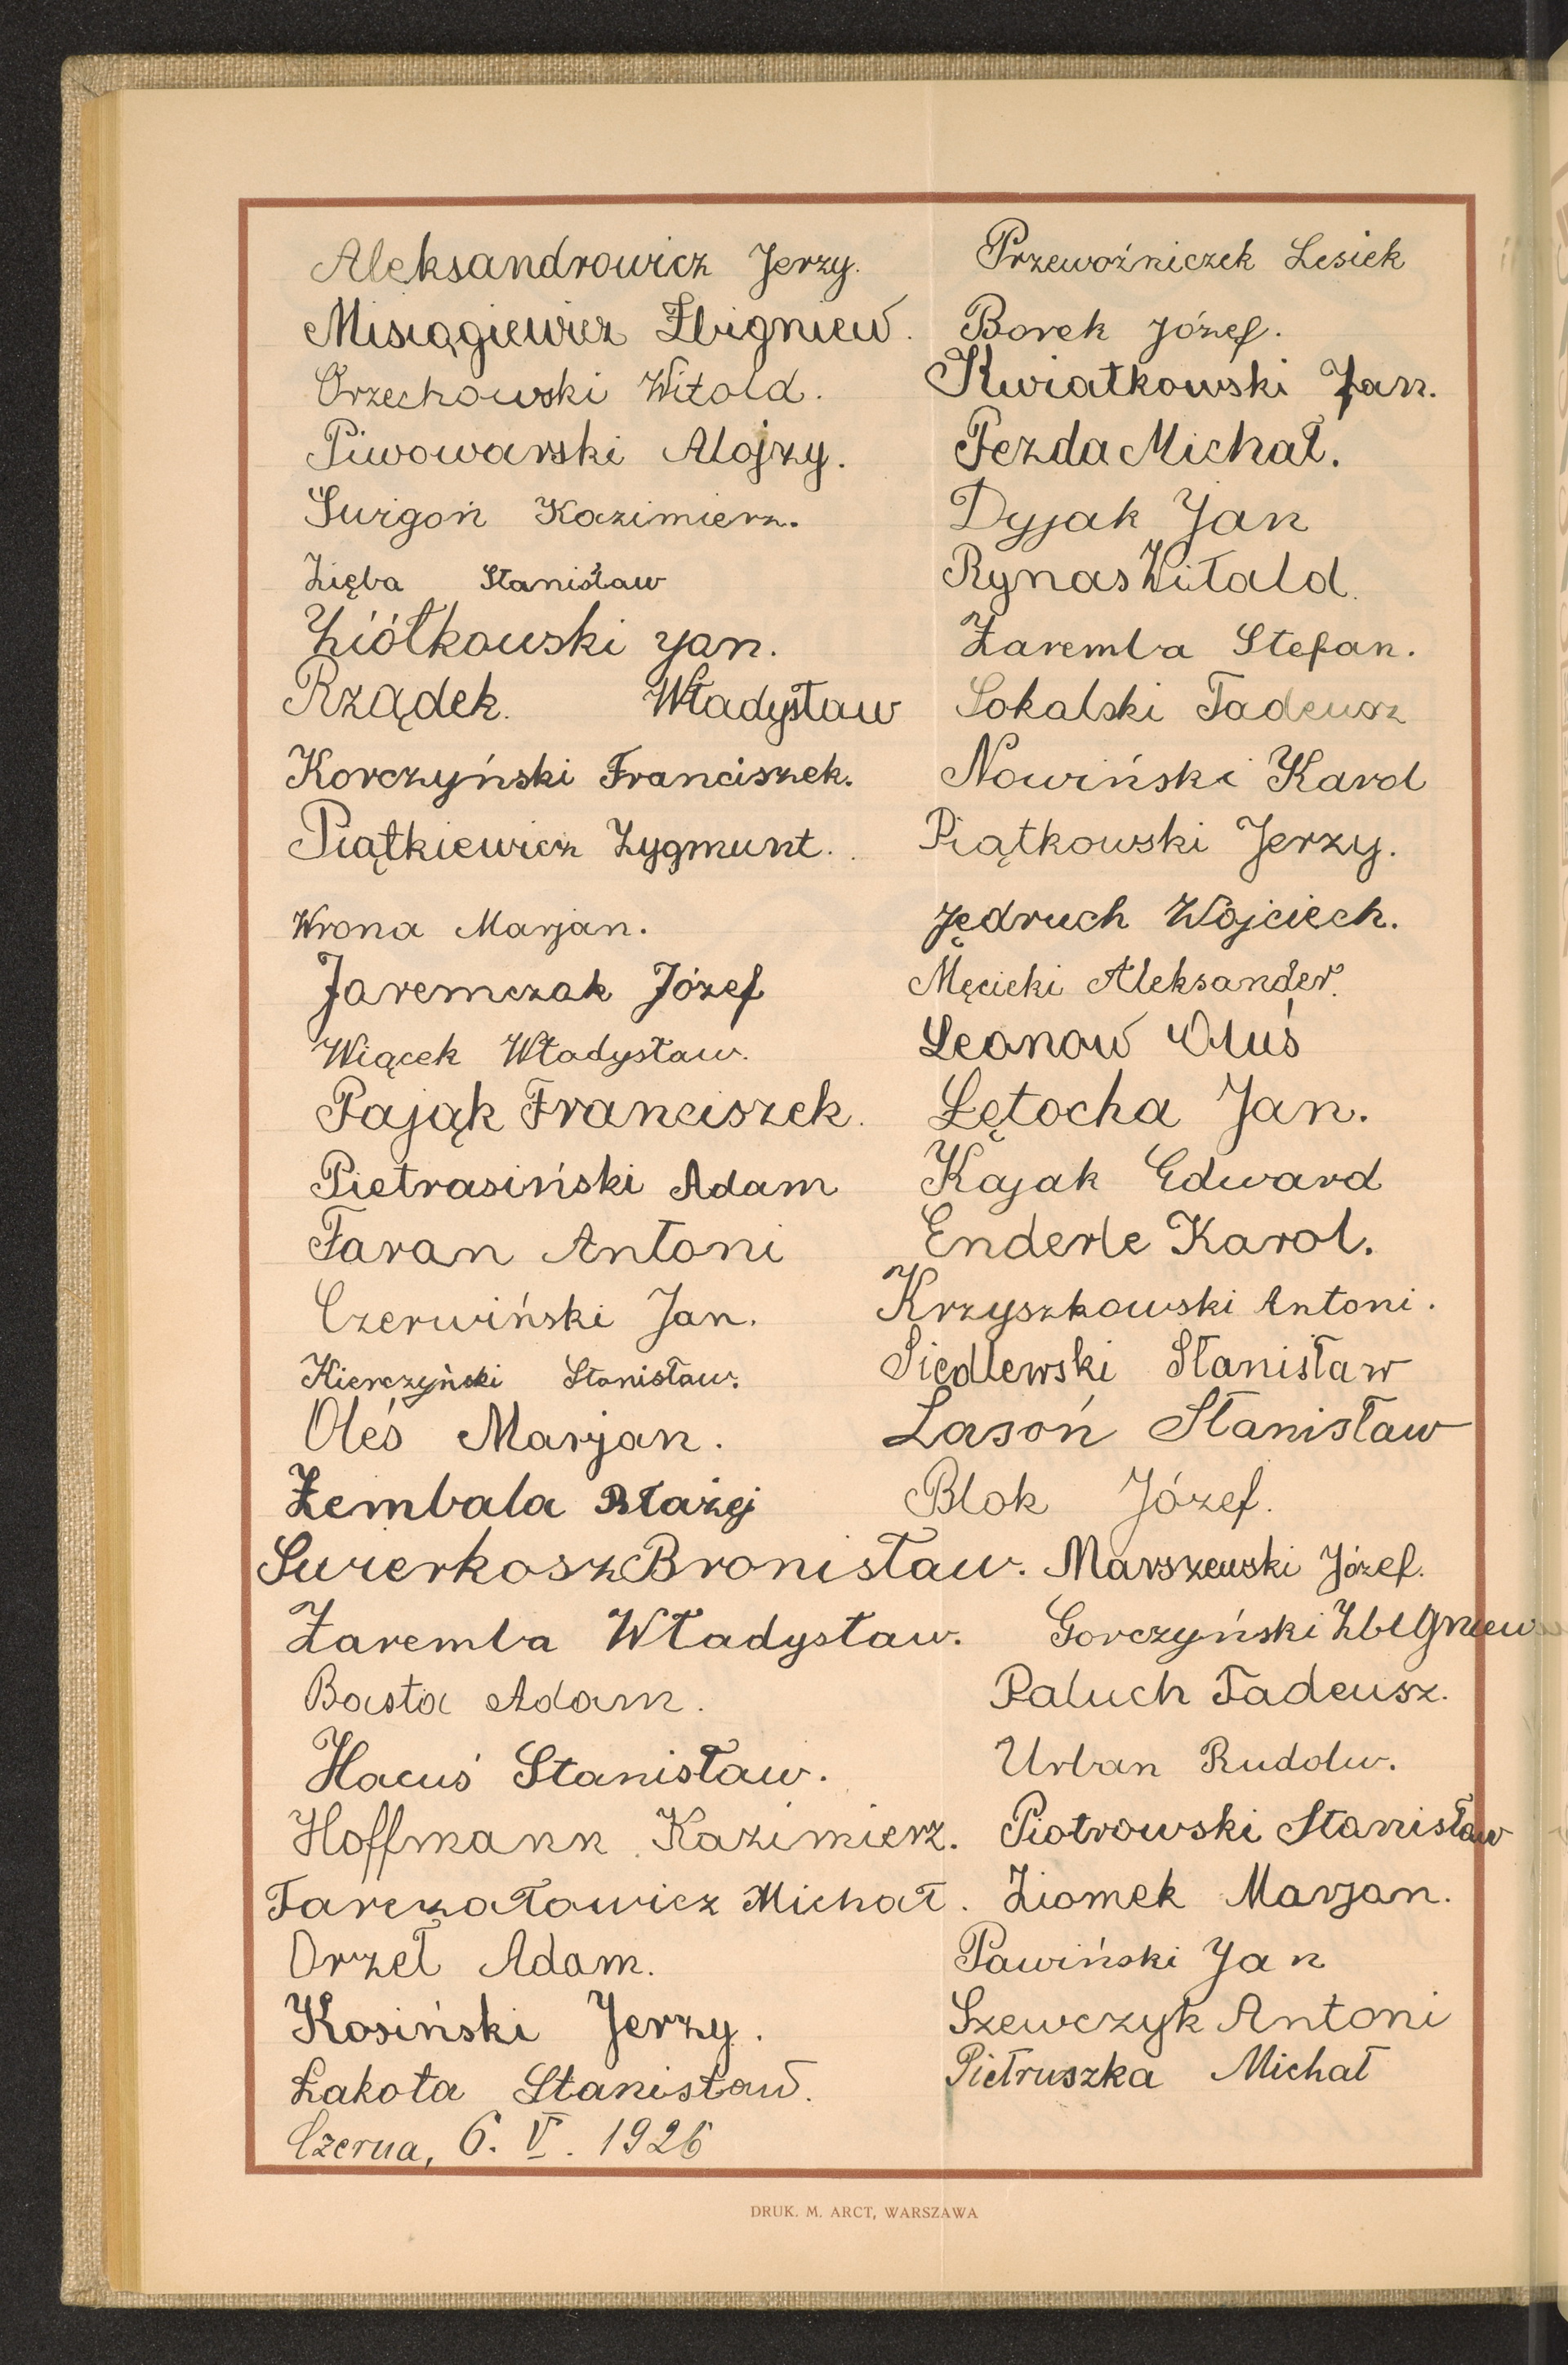 Aleksandrowicz Jerzy.
Misiągiewicz Zbigniew.
Orzechowski Witold.
Piwowarski Alojzy.
Świgoń Kazimierz.
Zięba Stanisław
Ziółkowski Jan.
Rządek. Władysław
Korczyński Franciszek.
Piątkiewicz Zygmunt.
Wrona Marjan.
Jaremczak Józef
Wiącek Władysław.
Pająk Franciszek.
Pietrasiński Adam
Faran Antoni
Czerwiński Jan.
Kierczyński Stanisław.
Oleś Marjan.
Zembala Błażej
Swierkosz Bronisław.
Zaremba Władysław.
Basta Adam.
Hacuś Stanisław.
Hoffmann Kazimierz.
Tarczałowicz Michał.
Orzeł Adam.
Kosiński Jerzy.
Łakota Stanisław.
Czerna, 6. V. 1926
Przewoźniczek Lesiek
Borek Józef.
Kwiatkowski Jan.
Pezda Michał.
Dyjak Jan
Rynas Witald.
Zaremba Stefan.
Sokalski Tadeusz
Nowiński Karol
Piątkowski Jerzy.
Jędruch Wojciech.
Męcicki Aleksander.
Leonow Oluś
Lętocha Jan.
Kajak Edward
Enderle Karol.
Krzyszkowski Antoni.
Siedlewski Stanisław
Lasoń Stanisław
Blok Józef.
Marszewski Józef.
Gorczyński Zbigniew
Paluch Tadeusz.
Urban Rudolw.
Piotrowski Stanisław
Ziomek Marjan.
Pawiński Jan
Szewczyk Antoni
Pietruszka Michał
DRUK. M. ARCT, WARSZAWA